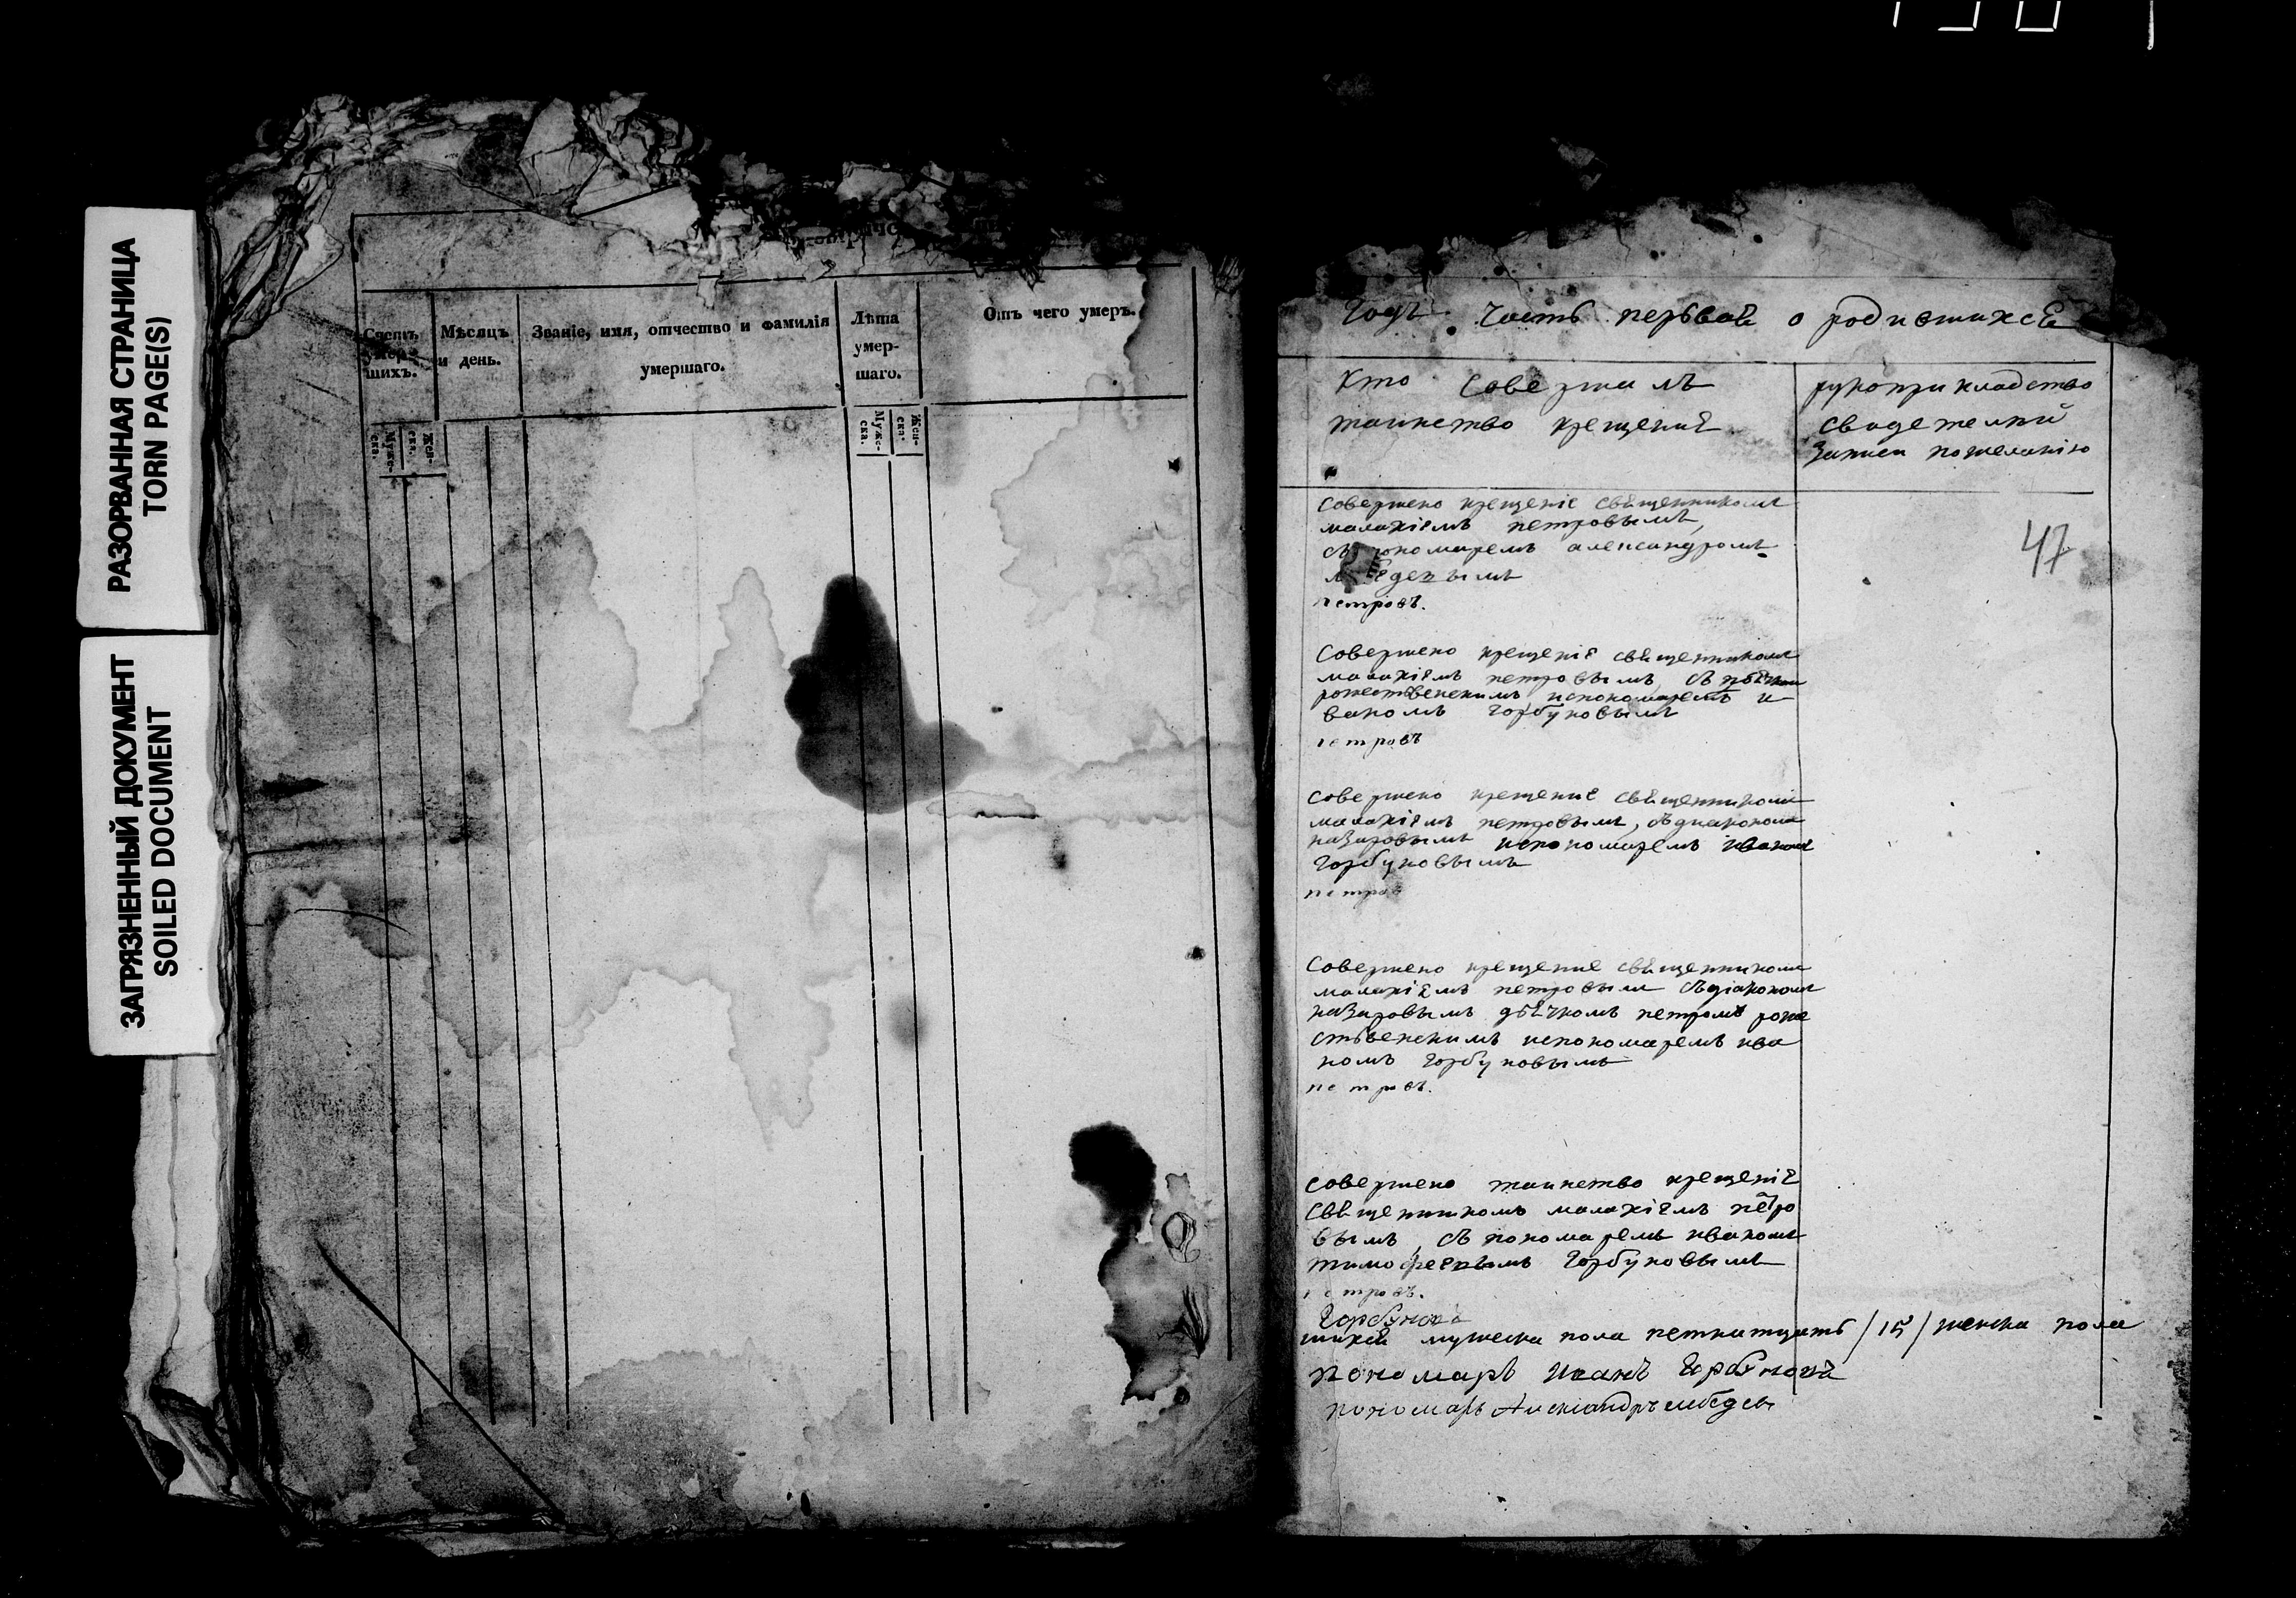 РАЗОРВАННАЯ СТРАНИЦА
TORN PAGE(S)
ЗАГРЯЗНЕННЫЙ ДОКУМЕНТ
SOILED DOCUMENT
Счетъ умер-шихъ.
Мѣсяцъ и день.
Званіе, имя, отчество и фамилія
умершаго.
Лѣта
умер-
шаго.
Отъ чего умеръ.
Муже-
ска.
Жен-
ска.
Муже-
ска.
Жен-
ска.
Годъ. Часть первая о родившихся
Кто совершилъ
таинство крещения
рукоприкладство
свидетелей
записи пожеланію
47
Совершено крещеніе священникомъ
малахіемъ петровымъ,
пономаремъ александромъ
петровъ.
Совершено крещеніе священникомъ
малахіемъ петровымъ съ
рожественскимъ ипономаремъ и
ваномъ Горбуновымъ
петровъ
Совершено крещение священникомъ
малахіемъ петровымъ, съдиакономъ
назаровымъ ипономаремъ иваномъ
Горбуновымъ
петров
Совершено крещение священникомъ
малахіемъ петровым съдіакономъ
назаровымъ дьячкомъ петромъ роже
ственскимъ ипономаремъ ива
номъ Горбуновымъ
петровъ.
Совершено таинство крещеніе
священникомъ малахіемъ петро
вымъ, съ пономаремъ иваномъ
Горбуновымъ
петровъ.
Горбуновъ
шихся мужеска пола петнатцать /15/ женска пола
пономарь Иванъ Горбуновъ
пономарь Александръ лебедевъ